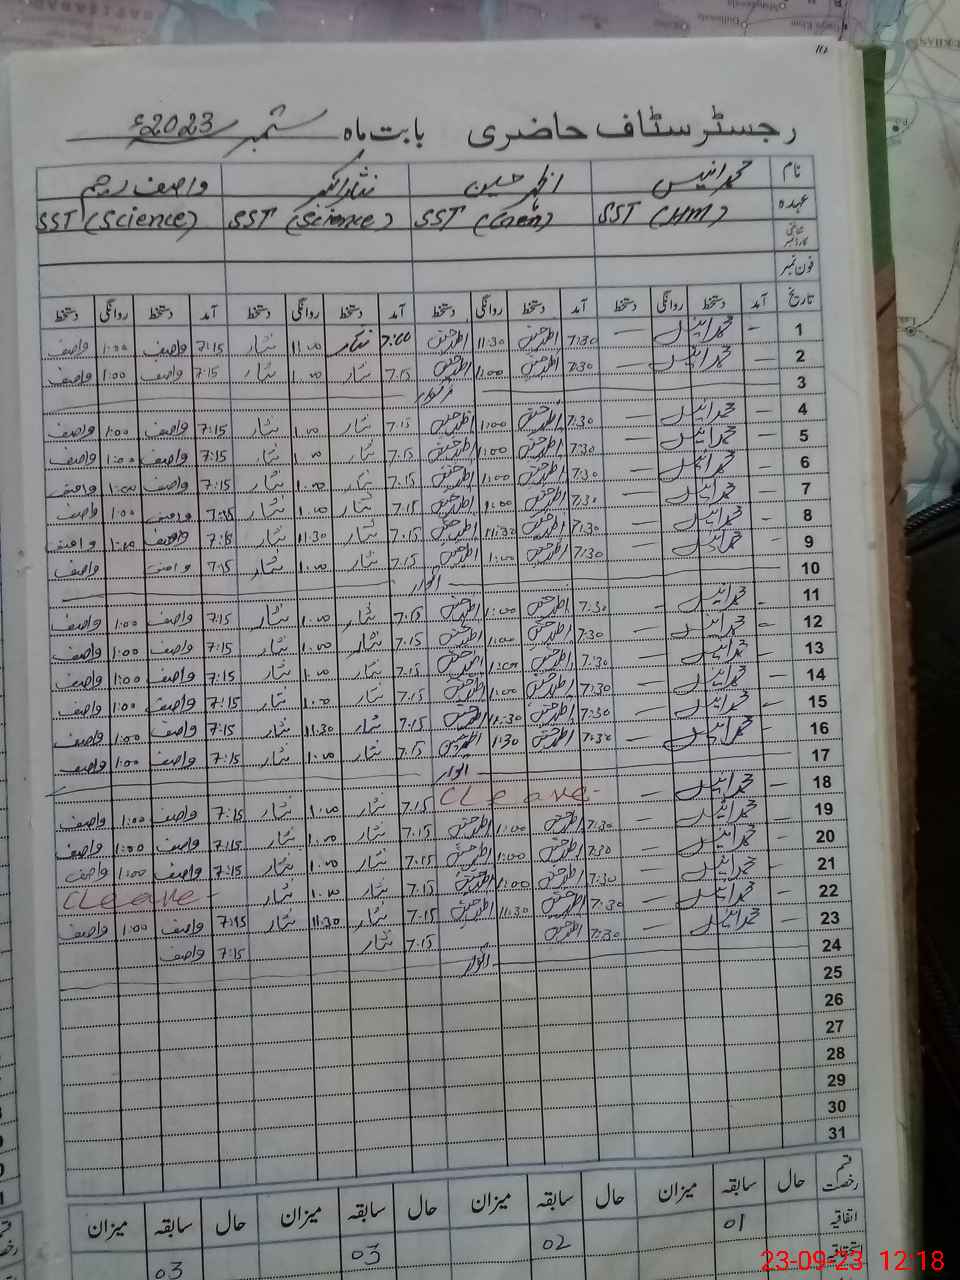 رجسٹر سٹاف حاضری بابت ماہ ستمبر 2023ء
نام محمد انیس اظہر حسین نثار واصف رحیم
عہدہ SST (HM) SST (Gen) SST (Science) SST (Science)
فون نمبر
تاریخ آمد دستخط روانگی دستخط آمد دستخط روانگی دستخط آمد دستخط روانگی دستخط آمد دستخط روانگی دستخط
1 محمد انیس 7:30 اظہر حسین 11:30 اظہر حسین 7:00 نثار 11:00 نثار 7:15 واصف 1:00 واصف
2 محمد انیس 7:30 اظہر حسین 1:00 اظہر حسین 7:15 نثار 1:00 نثار 7:15 واصف 1:00 واصف
3 اتوار
4 محمد انیس 7:30 اظہر حسین 1:00 اظہر حسین 7:15 نثار 1:00 نثار 7:15 واصف 1:00 واصف
5 محمد انیس 7:30 اظہر حسین 1:00 اظہر حسین 7:15 نثار 1:00 نثار 7:15 واصف 1:00 واصف
6 محمد انیس 7:30 اظہر حسین 1:00 اظہر حسین 7:15 نثار 1:00 نثار 7:15 واصف 1:00 واصف
7 محمد انیس 7:30 اظہر حسین 1:00 اظہر حسین 7:15 نثار 1:00 نثار 7:15 واصف 1:00 واصف
8 محمد انیس 7:30 اظہر حسین 11:30 اظہر حسین 7:15 نثار 11:30 نثار 7:15 واصف 1:00 واصف
9 محمد انیس 7:30 اظہر حسین 1:00 اظہر حسین 7:15 نثار 1:00 نثار 7:15 واصف واصف
10 اتوار
11 محمد انیس 7:30 اظہر حسین 1:00 اظہر حسین 7:15 نثار 1:00 نثار 7:15 واصف 1:00 واصف
12 محمد انیس 7:30 اظہر حسین 1:00 اظہر حسین 7:15 نثار 1:00 نثار 7:15 واصف 1:00 واصف
13 محمد انیس 7:30 اظہر حسین 1:00 اظہر حسین 7:15 نثار 1:00 نثار 7:15 واصف 1:00 واصف
14 محمد انیس 7:30 اظہر حسین 1:00 اظہر حسین 7:15 نثار 1:00 نثار 7:15 واصف 1:00 واصف
15 محمد انیس 7:30 اظہر حسین 11:30 اظہر حسین 7:15 نثار 11:30 نثار 7:15 واصف 1:00 واصف
16 محمد انیس 7:30 اظہر حسین 1:30 اظہر حسین 7:15 نثار 1:00 نثار 7:15 واصف 1:00 واصف
17 اتوار
18 محمد انیس C Leave 7:15 نثار 1:00 نثار 7:15 واصف 1:00 واصف
19 محمد انیس 7:30 اظہر حسین 1:00 اظہر حسین 7:15 نثار 1:00 نثار 7:15 واصف 1:00 واصف
20 محمد انیس 7:30 اظہر حسین 1:00 اظہر حسین 7:15 نثار 1:00 نثار 7:15 واصف 1:00 واصف
21 محمد انیس 7:30 اظہر حسین 1:00 اظہر حسین 7:15 نثار 1:00 نثار C Leave
22 محمد انیس 7:30 اظہر حسین 11:30 اظہر حسین 7:15 نثار 11:30 نثار 7:15 واصف 1:00 واصف
23 محمد انیس 7:30 اظہر حسین 7:15 نثار 7:15 واصف
24 اتوار
25
26
27
28
29
30
31
قسم رخصت حال سابقہ میزان حال سابقہ میزان حال سابقہ میزان حال سابقہ میزان
اتفاقیہ 01 02 03 03
23-09-23 12:18